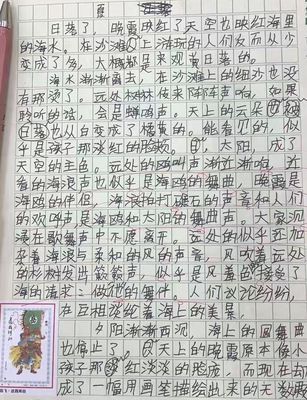 夏
日落了，晚霞映红了天空也映红海里
的海水。在沙滩上游玩的人们反而从少
变成了多，大概都是来观黄日落的。
海水渐渐离去，在沙滩上的细沙也没
有那烫了。远处树林传来阵阵声响。如果
聆听的话，会是蝉鸣声。天上的云朵被
日落也从白变成了橘黄的。能看见的，似
乎是孩子那淡红的脸颊。太阳，成了
天空的主色。远处的鸥叫声渐近渐响，近
着的海浪声也似乎是海鸥的舞曲，晚霞是
海鸥的伴侣。海浪拍打礁石的声音和人们
的欢呼声是海鸥和太阳的舞曲声。大家沉
浸在歌舞声中不愿离开。远处的似乎还加
杂着海浪与柔和的风的声音，风吹着远处
的杉树发出簌簌声，似乎是风着色接受了
海的请求：做他的舞伴。人们议论纷纷，
在互相谈论着海上的美景。
夕阳渐渐西沉，海上的圆舞曲
也停止了。天上的晚霞原本像小
孩子那淡红淡红的脸庞，而现在却
成了一幅用画笔描绘出来的无数